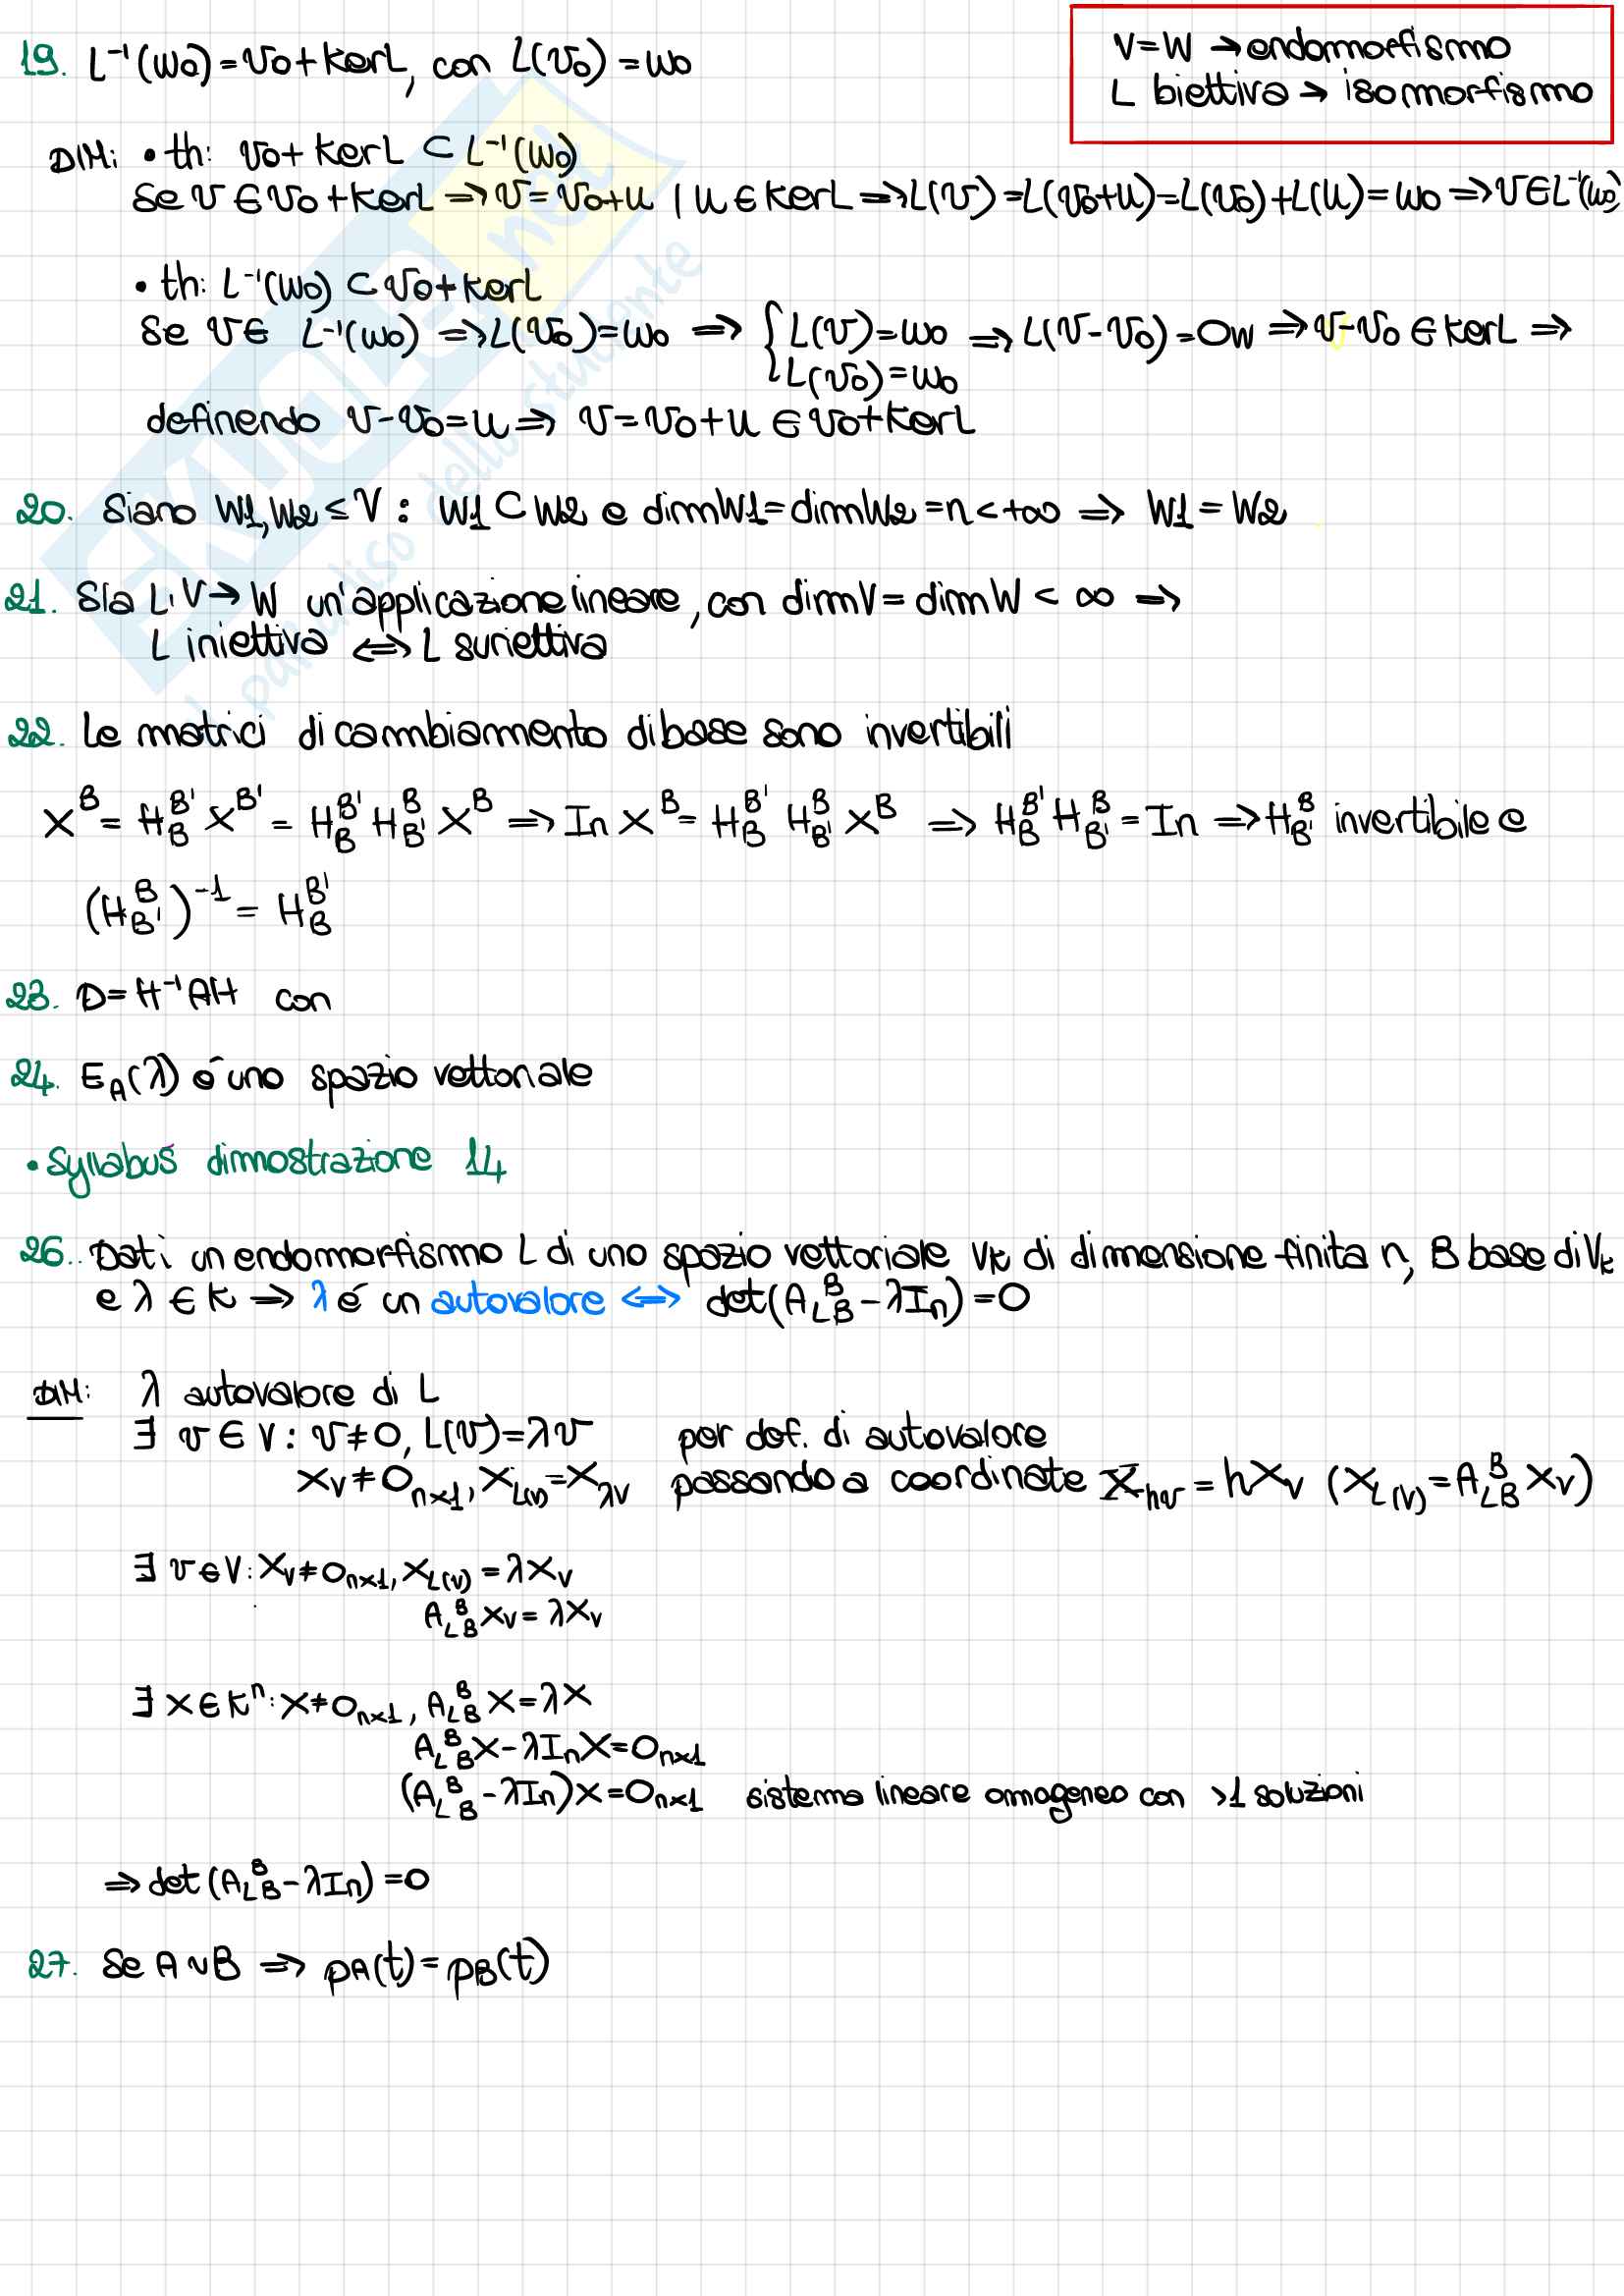 V=W → endomorfismo
L biettiva → isomorfismo
19. L⁻¹(w₀)=v₀+kerL, con L(v₀)=w₀
DIM: • th: v₀+kerL ⊂ L⁻¹(w₀)
Se v∈v₀+kerL ⟹ v=v₀+u | u∈kerL ⟹ L(v)=L(v₀+u)=L(v₀)+L(u)=w₀ ⟹ v∈L⁻¹(w₀)
• th: L⁻¹(w₀) ⊂ v₀+kerL
Se v∈ L⁻¹(w₀) ⟹ L(v₀)=w₀ ⟹ { L(v)=w₀ ⟹ L(v-v₀)=0w ⟹ v-v₀∈kerL ⟹
L(v₀)=w₀
definendo v-v₀=u ⟹ v=v₀+u∈v₀+kerL
20. Siano W1,W2≤V: W1⊂W2 e dimW1=dimW2=n<+∞ ⟹ W1=W2
21. Sia L:V→W un'applicazione lineare, con dimV=dimW<∞ ⟹
L iniettiva ⟺ L suriettiva
22. Le matrici di cambiamento di base sono invertibili
X^B = H_B^B' X^B' = H_B^B' H_B'^B X^B ⟹ In X^B = H_B^B' H_B'^B X^B ⟹ H_B^B' H_B'^B = In ⟹ H_B'^B invertibile e
(H_B'^B)⁻¹ = H_B^B'
23. D=H⁻¹AH con
24. E_A(λ) é uno spazio vettoriale
• Syllabus dimostrazione 14
26. Dati un endomorfismo L di uno spazio vettoriale V_K di dimensione finita n, B base di V_K
e λ∈K ⟹ λ é un autovalore ⟺ det(A_L^B_B-λI_n)=0
DIM: λ autovalore di L
∃ v∈V: v≠0, L(v)=λv per def. di autovalore
X_v≠0_{n×1}, X_{L(v)}=X_{λv} passando a coordinate X_{hv}=hX_v (X_{L(v)}=A_L^B_B X_v)
∃ v∈V: X_v≠0_{n×1}, X_{L(v)}=λX_v
A_L^B_B X_v=λX_v
∃ X∈K^n: X≠0_{n×1}, A_L^B_B X=λX
A_L^B_B X-λI_nX=0_{n×1}
(A_L^B_B-λI_n)X=0_{n×1} sistema lineare omogeneo con >1 soluzioni
⟹ det(A_L^B_B-λI_n)=0
27. Se A∼B ⟹ p_A(t)=p_B(t)
SKUOLA.net
il paradiso dello studente